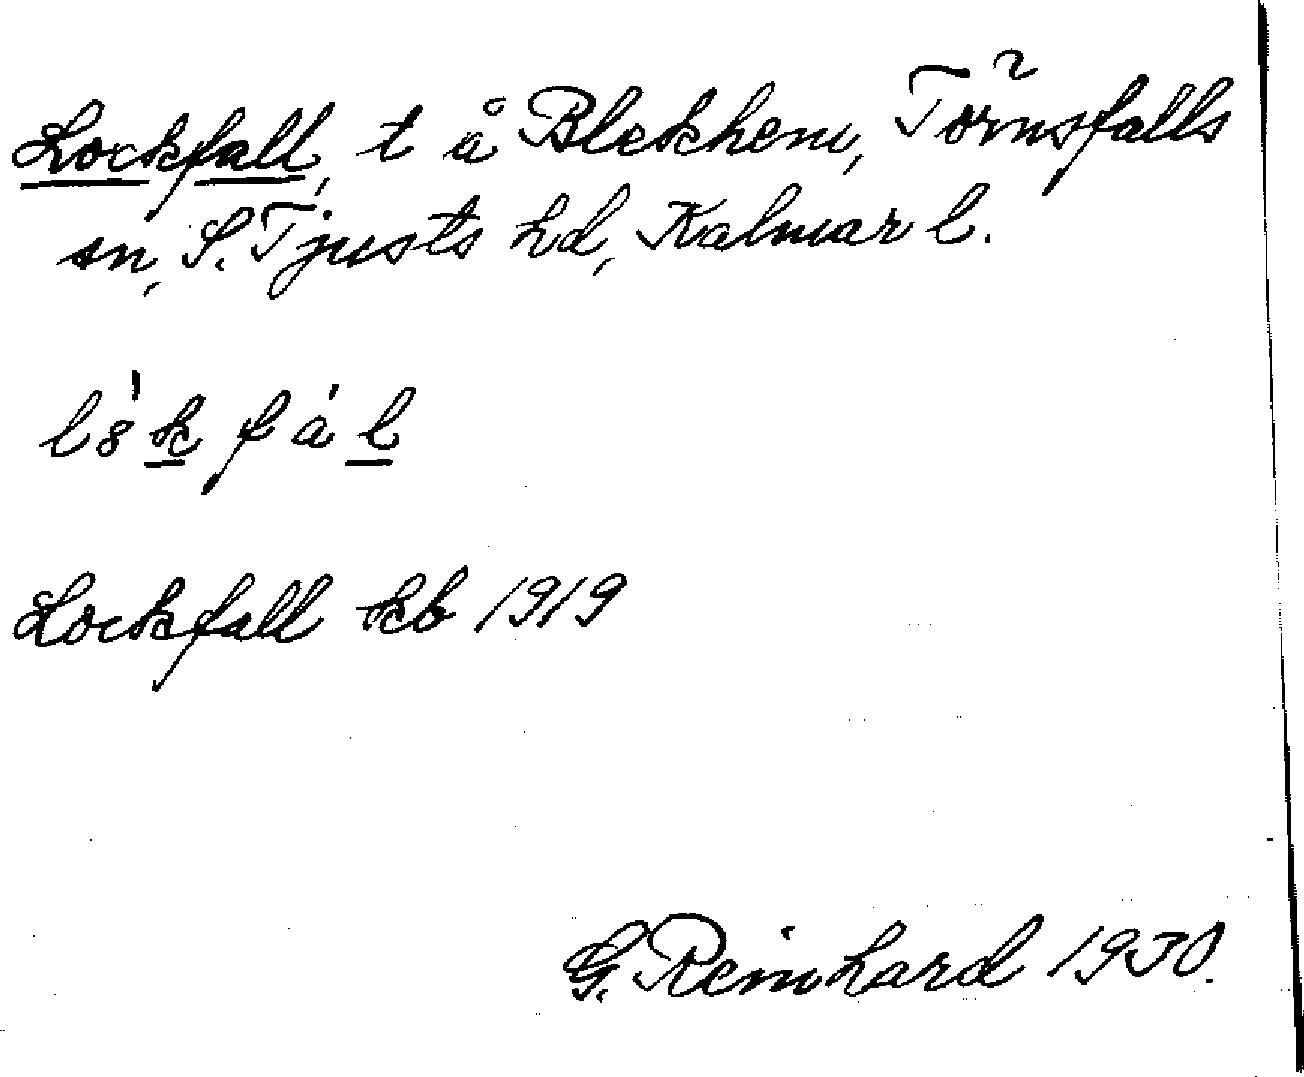 Lockfall, t å Blekhem, Törnsfalls
sn, S. Tjusts hd, Kalmar l.
Lockfall kb 1919
G. Reinhard 1930.